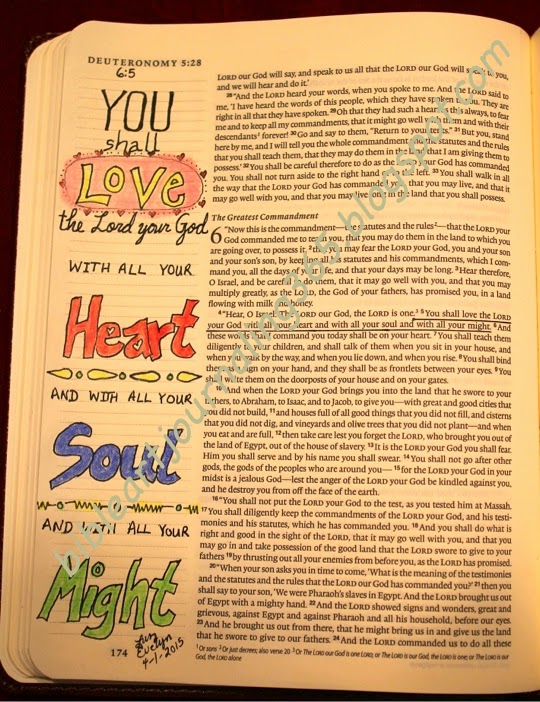 DEUTERONOMY 5:28
6:5
YOU
shall
Love
the Lord your God
WITH ALL YOUR
Heart
AND WITH ALL YOUR
Soul
AND WITH ALL YOUR
Might
174
Evelyn
4-1-2015
LORD our God will say, and speak to us all that the LORD our God will speak to you,
and we will hear and do it.'
28 "And the LORD heard your words, when you spoke to me. And the LORD said to
me, 'I have heard the words of this people, which they have spoken to you. They are
right in all that they have spoken. 29 Oh that they had such a heart as this always, to fear
me and to keep all my commandments, that it might go well with them and with their
descendants1 forever! 30 Go and say to them, "Return to your tents." 31 But you, stand
here by me, and I will tell you the whole commandment and the statutes and the rules
that you shall teach them, that they may do them in the land that I am giving them to
possess.' 32 You shall be careful therefore to do as the LORD your God has commanded
you. You shall not turn aside to the right hand or to the left. 33 You shall walk in all
the way that the LORD your God has commanded you, that you may live, and that it
may go well with you, and that you may live long in the land that you shall possess.
The Greatest Commandment
6 "Now this is the commandment—the statutes and the rules2—that the LORD your
God commanded me to teach you, that you may do them in the land to which you
are going over, to possess it, 2 that you may fear the LORD your God, you and your son
and your son's son, by keeping all his statutes and his commandments, which I com-
mand you, all the days of your life, and that your days may be long. 3 Hear therefore,
O Israel, and be careful to do them, that it may go well with you, and that you may
multiply greatly, as the LORD, the God of your fathers, has promised you, in a land
flowing with milk and honey.
4 "Hear, O Israel: The LORD our God, the LORD is one.3 5 You shall love the LORD
your God with all your heart and with all your soul and with all your might. 6 And
these words that I command you today shall be on your heart. 7 You shall teach them
diligently to your children, and shall talk of them when you sit in your house, and
when you walk by the way, and when you lie down, and when you rise. 8 You shall bind
them as a sign on your hand, and they shall be as frontlets between your eyes. 9 You
shall write them on the doorposts of your house and on your gates.
10 "And when the LORD your God brings you into the land that he swore to your
fathers, to Abraham, to Isaac, and to Jacob, to give you—with great and good cities that
you did not build, 11 and houses full of all good things that you did not fill, and cisterns
that you did not dig, and vineyards and olive trees that you did not plant—and when
you eat and are full, 12 then take care lest you forget the LORD, who brought you out of
the land of Egypt, out of the house of slavery. 13 It is the LORD your God you shall fear.
Him you shall serve and by his name you shall swear. 14 You shall not go after other
gods, the gods of the peoples who are around you— 15 for the LORD your God in your
midst is a jealous God—lest the anger of the LORD your God be kindled against you,
and he destroy you from off the face of the earth.
16 "You shall not put the LORD your God to the test, as you tested him at Massah.
17 You shall diligently keep the commandments of the LORD your God, and his testi-
monies and his statutes, which he has commanded you. 18 And you shall do what is
right and good in the sight of the LORD, that it may go well with you, and that you
may go in and take possession of the good land that the LORD swore to give to your
fathers 19 by thrusting out all your enemies from before you, as the LORD has promised.
20 "When your son asks you in time to come, 'What is the meaning of the testimonies
and the statutes and the rules that the LORD our God has commanded you?' 21 then you
shall say to your son, 'We were Pharaoh's slaves in Egypt. And the LORD brought us out
of Egypt with a mighty hand. 22 And the LORD showed signs and wonders, great and
grievous, against Egypt and against Pharaoh and all his household, before our eyes.
23 And he brought us out from there, that he might bring us in and give us the land
that he swore to give to our fathers. 24 And the LORD commanded us to do all these
1 Or sons 2 Or just decrees; also verse 20 3 Or The LORD our God is one LORD; or The LORD is our God, the LORD is one; or The LORD is our
God, the LORD alone
bibleartjournaling365.blogspot.com